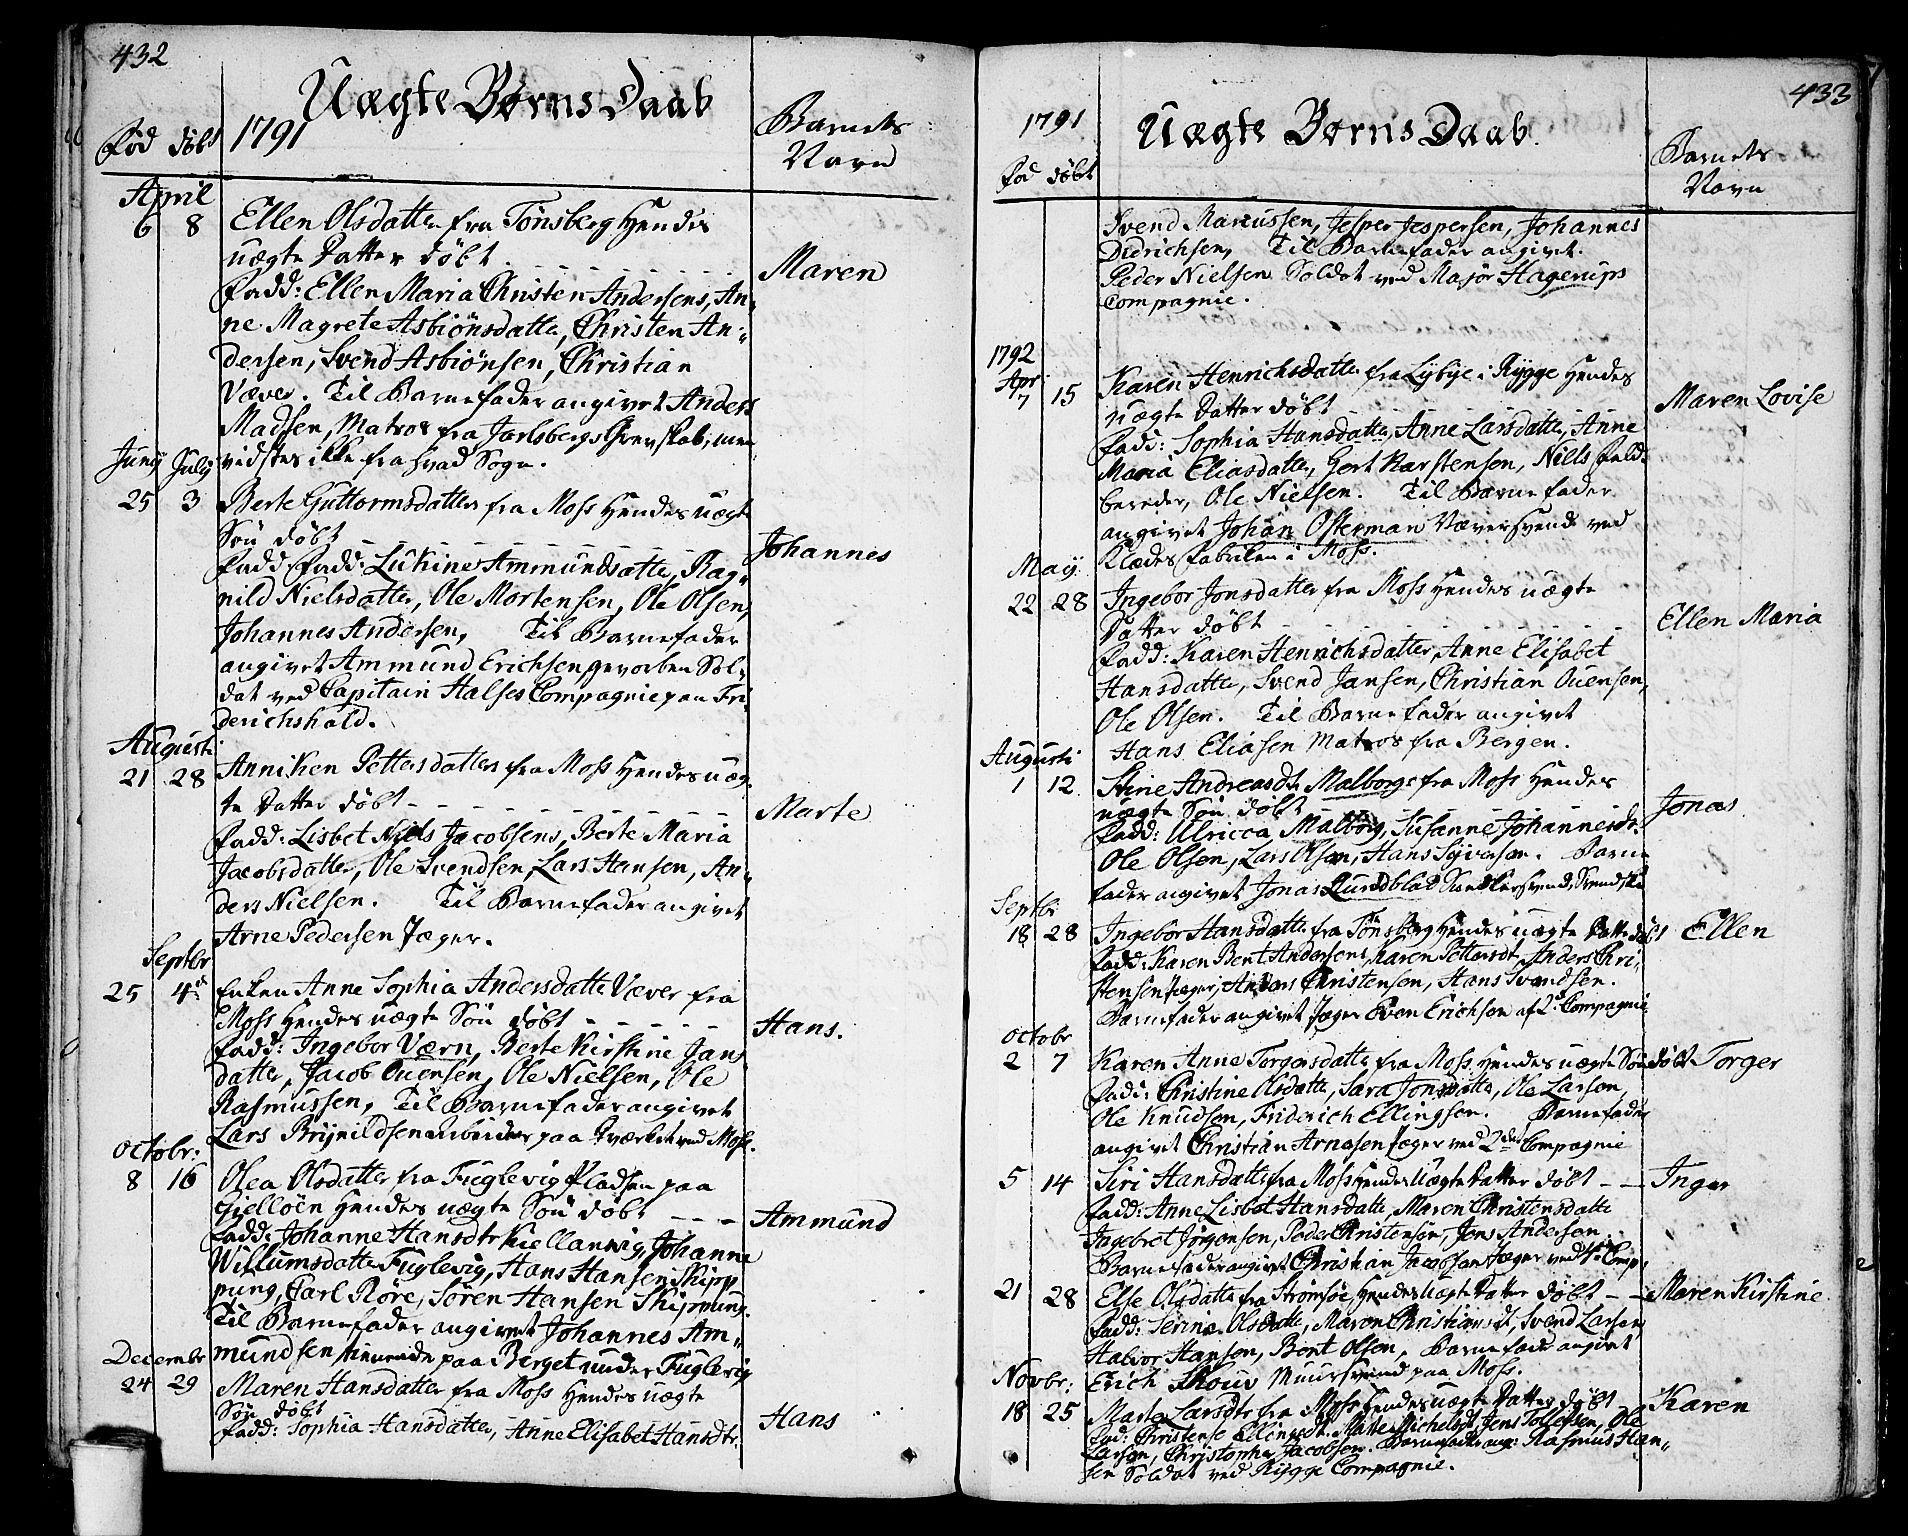 432
Uægte Børns Daab
Fød döbt 1791
Barnets
Navn
April
6 8 Ellen Olsdatter fra Tönsberg Hendes
uægte Datter döbt
Maren
Fadd: Ellen Maria Christen Andersens, An-
ne Magrete Asbiönsdatter, Christen An-
dersen, Svend Asbiönsen, Christian
Væver. Til Barnefader angivet Anders
Madsen, Matros fra Jarlsbergs Grevskab, men
vidstes ikke fra hvad Sogn.
Juny July
25 3 Berte Guttormsdatter fra Moss Hendes uægte
Sön döbt
Johannes
Fadd: Fadd: Lukine Ammundsdatter, Rag-
nild Nielsdatter, Ole Mortensen, Ole Olsen,
Johannes Andersen, Til Barnefader
angivet Ammund Erichsen, gevorben Sol-
dat ved Capitain Halses Compagnie paa Fri
derichshald.
Augusti
21 28 Anniken Pettersdatter fra Moss Hendes uæg-
te Datter döbt
Marte
Fadd: Lisbet Niels Jacobsens, Berte Maria
Jacobsdatter, Ole Svendsen, Lars Hansen, An-
ders Nielsen. Til Barnefader angivet
Arne Pedersen Jæger.
Septbr
25 4de Enken Anne Sophia Andersdatter Væver fra
Moss Hendes uægte Sön döbt
Hans.
Fadd: Ingebor Værn, Berte Kirstine Jans
datter, Jacob Ouensen, Ole Nielsen, Ole
Rasmussen, Til Barnefader angivet
Lars Brynildsen arbeider paa Værket ved Moss.
Octobr:
8 16 Olea Olsdatter fra Fuglevig Pladsen paa
Gielløen Hendes uægte Sön döbt
Ammund
Fadd: Johanne Hansdtr Kiellanvig, Johanne
Willumsdatter Fuglevig, Hans Hansen Skipp
pung, Carl Röre, Sören Hansen Skippung.
Til Barnefader angivet Johannes Am-
mundsen, tienende paa Berget under Fuglevig
Decembr
24 29 Maren Hansdatter fra Moss Hendes uægte
Sön döbt
Hans
Fadd: Sophia Hansdatter, Anne Elisabet Hansdtr.
433
1791 Uægte Børns Daab.
Fød döbt
Barnets
Navn
Svend Marcussen, Jesper Jespersen, Johannes
Diderichsen, Til Barnefader angivet.
Peder Nielsen Soldat ved Majör Hagerups
Compagnie.
1792
Apr:
7 15 Karen Henrichsdatter fra Lybye i Rygge Hendes
uægte Datter döbt
Maren Lovise
Fadd: Sophia Hansdatter, Anne Larsdatter, Anne
Maria Eliasdatter, Gert Karstensen, Niels Feld-
bereder, Ole Nielsen. Til Barnefader
angivet Johan Osterman Væversvend ved
Klædes Fabriken i Moss.
May
22 28 Ingebor Jonsdatter fra Moss Hendes uægte
Datter döbt
Ellen Maria
Fadd: Karen Henrichsdatter, Anne Elisabet
Hansdatter, Svend Jansen, Christian Ouensen,
Ole Olsen. Til Barnefader angivet
Hans Eliasen Matros fra Bergen.
Augusti
1 12 Stine Andreasdtr Malborg fra Moss Hendes
uægte Sön döbt
Jonas
Fadd: Ulricca Malborg, Susanne Johannesdr.
Ole Olsen, Lars Olsen, Hans Syversen. Barne
fader angivet Jonas Lundblad Snedkersvend, Svendske
Septbr
18 28 Ingebor Hansdatter fra Tönsberg Hendes uægte Datter döbt Ellen
Fadd: Karen Bent Andersens, Karen Pettersdt, Anders Chri-
stensen Jæger, Anders Christensen, Hans Svendsen.
Barnefader angivet Jæger Even Erichsen af 2de Compagnie
Octobr
2 7 Karen Anne Torgersdatter fra Moss, Hendes uægte Sön döbt Torger
Fadd: Christine Olsdatter, Sara Jonsdatter, Ole Larsen,
Ole Knudsen, Friderich Ellingsen. Barnefader
angivet Christian Arnesen Jæger ved 2det Compagnie
5 14 Siri Hansdatter fra Moss Hendes Uægte Datter döbt Inger
Fadd: Anne Lisbet Hansdatter, Maren Christensdatter
Ingebret Jörgensen, Peder Christensen, Jens Andersen
Barnefader angivet Christian Jacobsen Jæger ved 4de Comp.
21 28 Else Olsdatter fra Strömsöe Hendes Uægte Datter döbt Maren Kirstine.
Fadd: Serine Olsdatter, Maren Christiansdt, Svend Larsen,
Halvor Hansen, Bent Olsen, Barnefader angivet
Erich Skouv Muursvend paa Moss.
Novbr:
18 25 Marte Larsdtr fra Moss Hendes uægte Datter döbt Karen
Fad: Christense Ellensdt. Marte Michelsdt, Jens Tollefsen, Ole
Larsen, Christopher Jacobsen. Barnefader ang: Rasmus Han-
sen Soldat ved Rygge Compagnie.